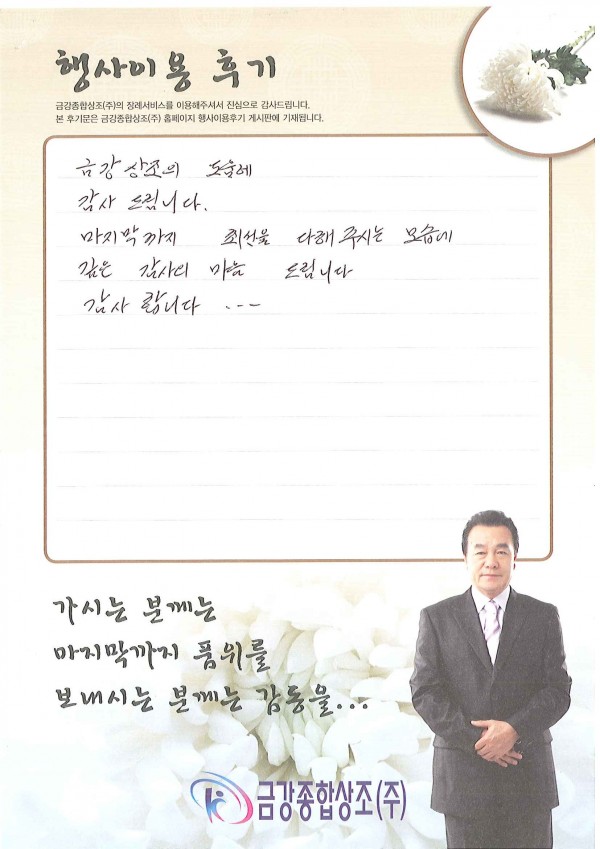 행사이용 후기
금강종합상조(주)의 장례서비스를 이용해주셔서 진심으로 감사드립니다.
본 후기문은 금강종합상조(주) 홈페이지 행사이용후기 게시판에 기재됩니다.
금강상조의 도움에
감사 드립니다.
마지막까지 최선을 다해 주시는 모습에
깊은 감사의 마음 드립니다
감사 합니다 ...
가시는 분께는
마지막까지 품위를
보내시는 분께는 감동을...
금강종합상조(주)